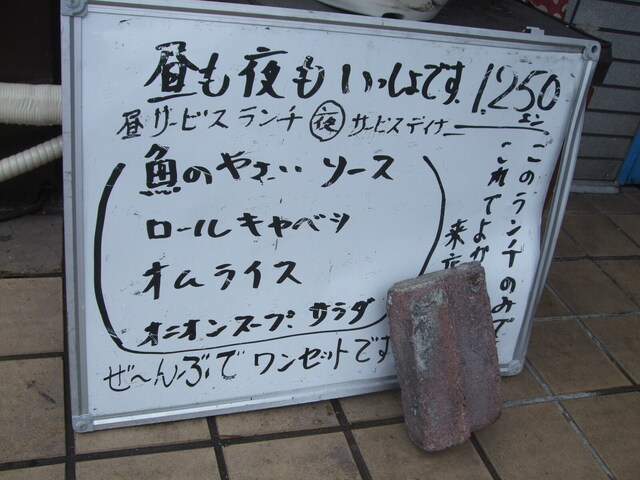 昼も夜もいっしょです。1,250エン
昼サービスランチ 夜 サービスディナー
魚のやさいソース
ロールキャベツ
オムライス
オニオンスープ サラダ
ぜ〜んぶでワンセットです
このランチのみで
これでよか
来店